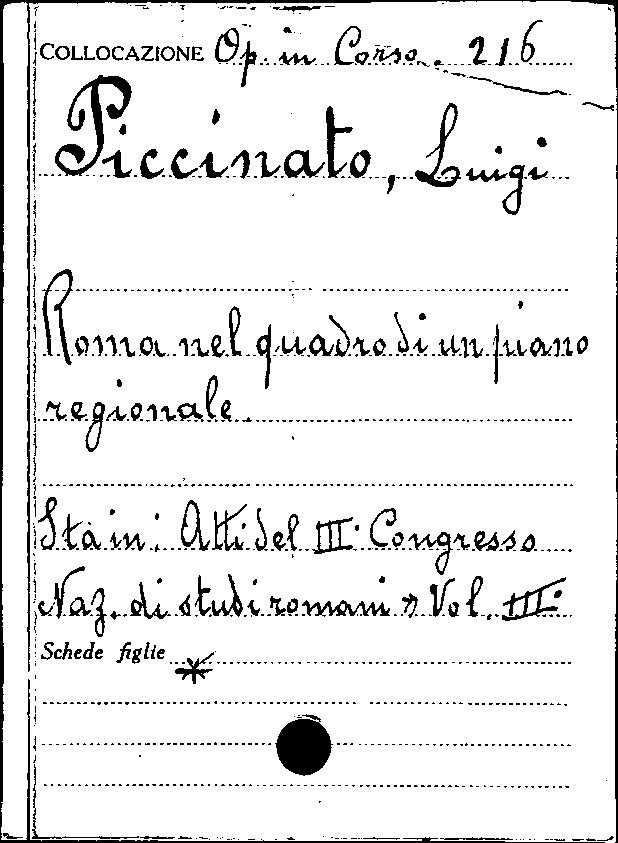 COLLOCAZIONE Op. in Corso. 216
Piccinato, Luigi
Roma nel quadro di un piano
regionale.
Sta in: Atti del III° Congresso
Naz. di studi romani » Vol. III°
Schede figlie